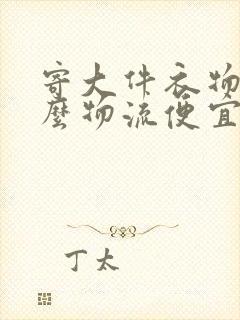 寄大件衣物
麼物流便宜
丁太